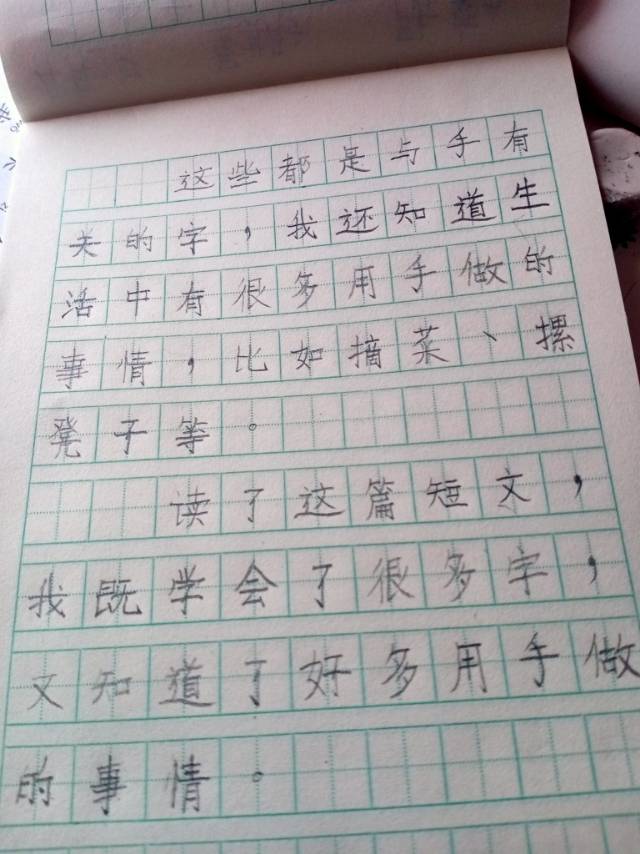 这些都是与手有
关的字，我还知道生
活中有很多用手做的
事情，比如摘菜、摞
凳子等。
读了这篇短文，
我既学会了很多字，
文知道了好多用手做
的事情。